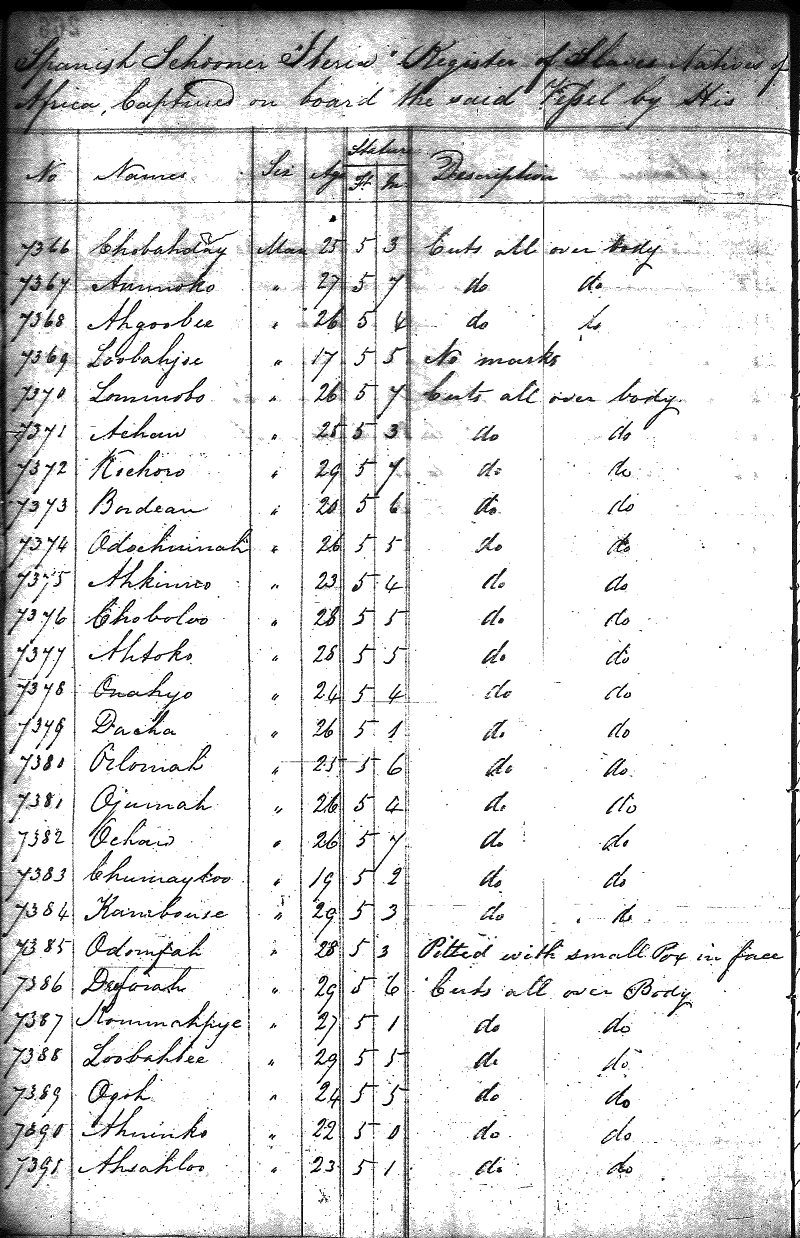 Spanish Schooner "Iberia" Register of Slaves Natives of
Africa, Captured on board the said Vessel by His
No Names Sex Age Stature Ft In Description
7366 Chobahday Man 25 5 3 Cuts all over body
7367 Aunnoko " 27 5 7 do do
7368 Ahgoobee " 26 5 4 do do
7369 Loobahjse " 17 5 5 No marks
7370 Lommobo " 26 5 7 Cuts all over body
7371 Achaw " 25 5 3 do do
7372 Kechoro " 29 5 7 do do
7373 Bordeau " 20 5 6 do do
7374 Odochuinah " 26 5 5 do do
7375 Ahkinneo " 23 5 4 do do
7376 Choboloo " 28 5 5 do do
7377 Ahtoko " 28 5 5 do do
7378 Onahyo " 24 5 4 do do
7379 Dacha " 26 5 1 do do
7380 Orlomah " 25 5 6 do do
7381 Ojumah " 26 5 4 do do
7382 Ochaw " 26 5 7 do do
7383 Chumaykoo " 19 5 2 do do
7384 Kambouse " 29 5 3 do do
7385 Odomfah " 28 5 3 Pitted with small Pox in face
7386 Deforah " 29 5 6 Cuts all over Body
7387 Kommahpye " 27 5 1 do do
7388 Loobahbee " 29 5 5 do do
7389 Ogoh " 24 5 5 do do
7390 Ahuinko " 22 5 0 do do
7391 Ahsahloo " 23 5 1 do do